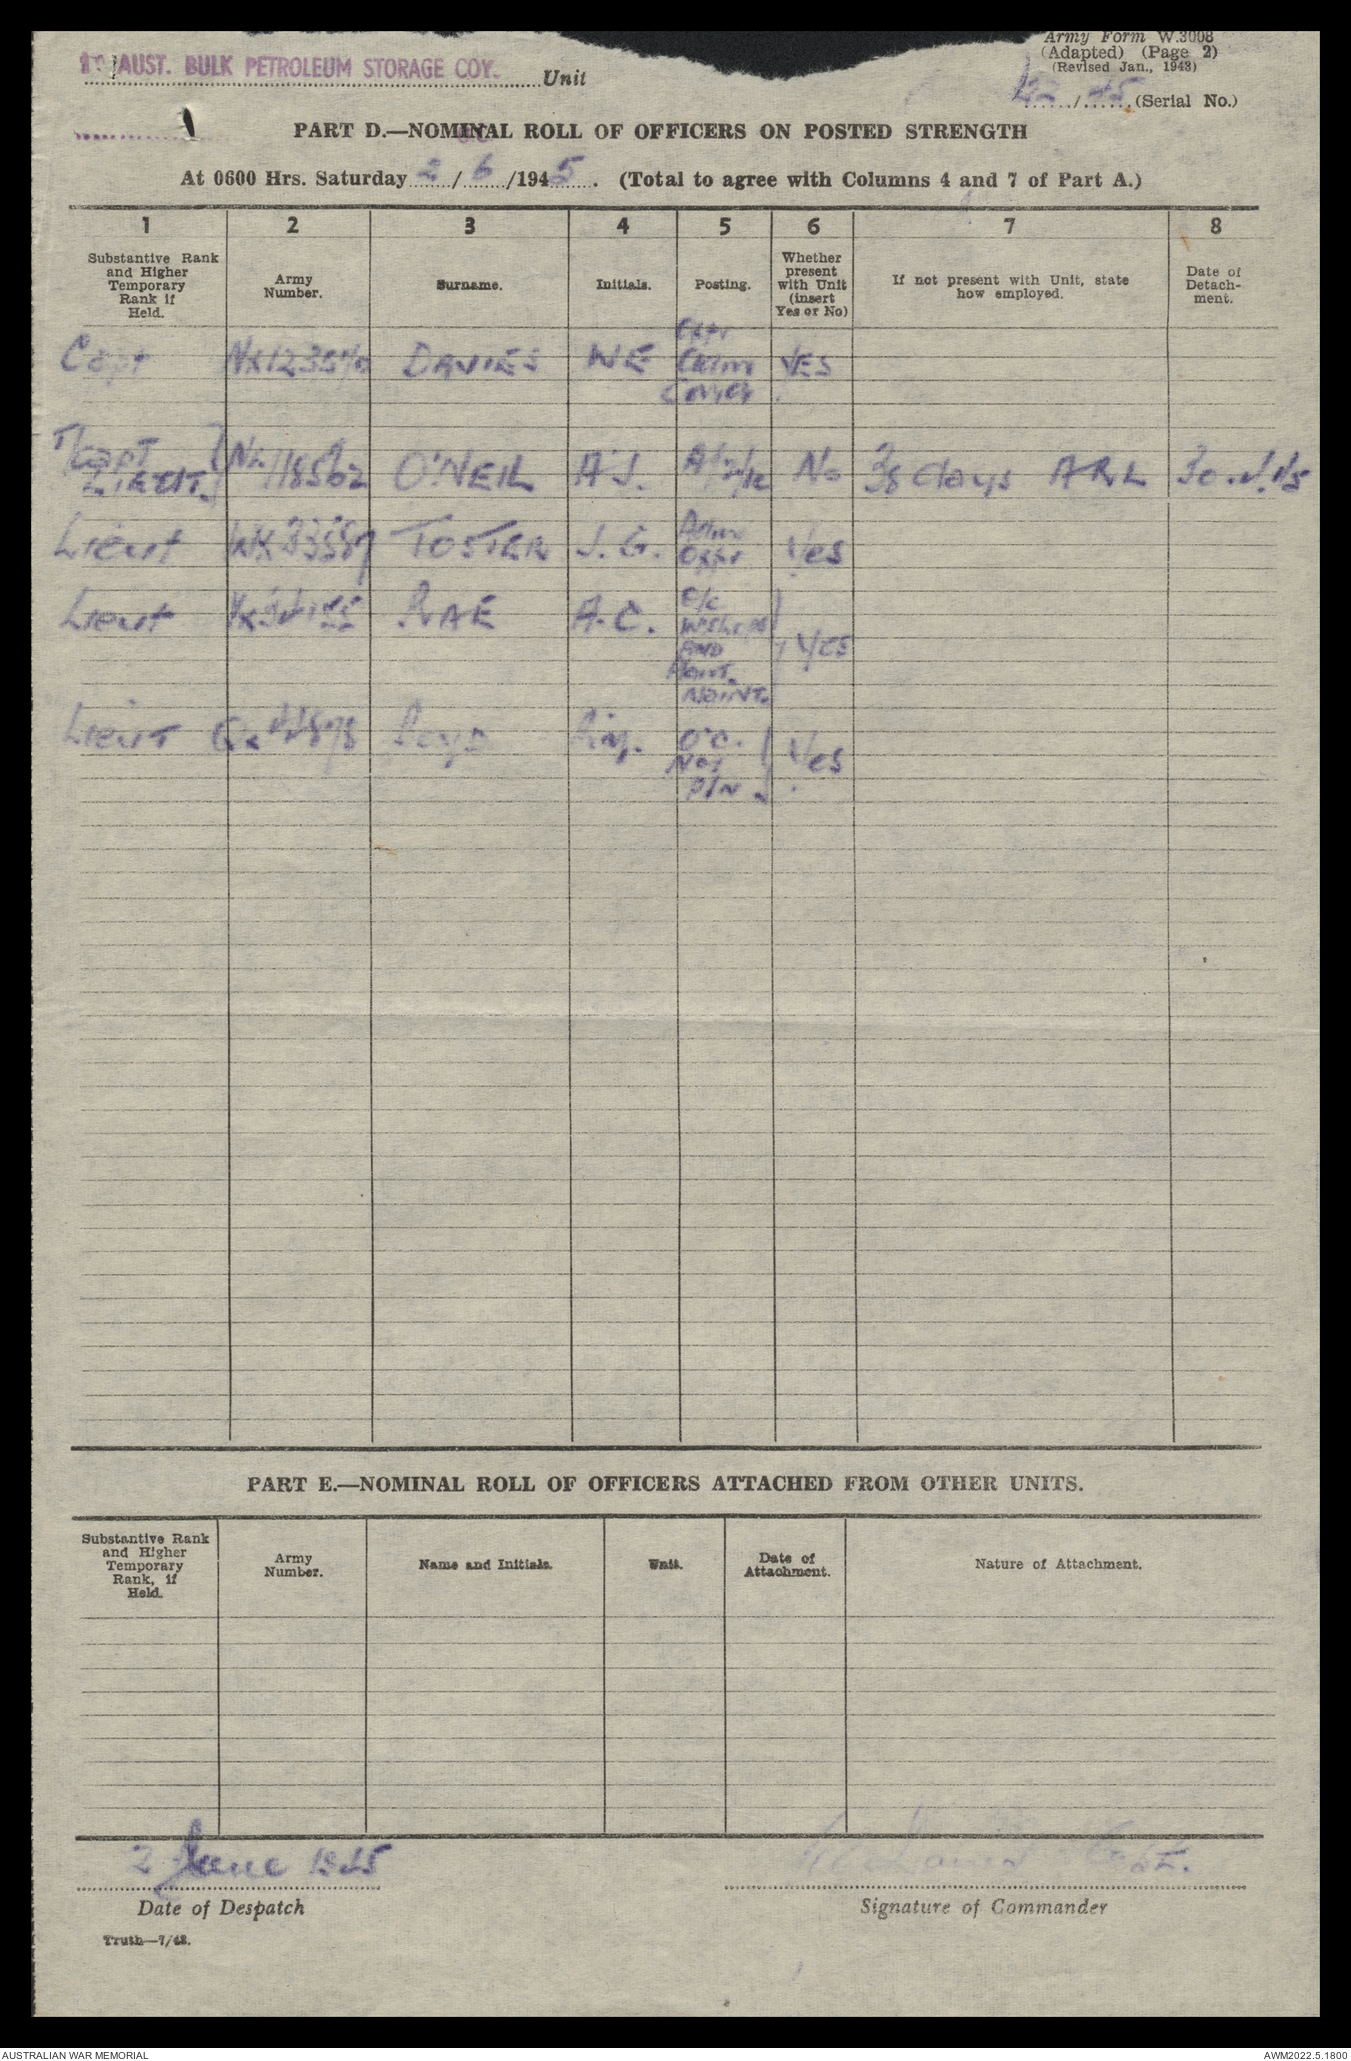 AUST. BULK PETROLEUM STORAGE COY. Unit
Army Form W.3008
(Adapted) (Page 2)
(Revised Jan., 1943)
/ (Serial No.)
PART D.—NOMINAL ROLL OF OFFICERS ON POSTED STRENGTH
At 0600 Hrs. Saturday 2/6/1945. (Total to agree with Columns 4 and 7 of Part A.)
1 2 3 4 5 6 7 8
Substantive Rank and Higher Temporary Rank if Held.
Army Number.
Surname.
Initials.
Posting.
Whether present with Unit (insert Yes or No)
If not present with Unit, state how employed.
Date of Detachment.
Capt DAVIES WE YES
T/Capt
Lieut. O'NEIL A.J. No 38 days ARL
Lieut J.G. Yes
Lieut RAE A.C. O/C
AND
MAINT. Yes
Lieut O.C.
No1
Yes
PART E.—NOMINAL ROLL OF OFFICERS ATTACHED FROM OTHER UNITS.
Substantive Rank and Higher Temporary Rank, if Held.
Army Number.
Name and Initials.
Unit.
Date of Attachment.
Nature of Attachment.
2 June 1945
Capt.
Date of Despatch
Signature of Commander
Truth—7/43.
AUSTRALIAN WAR MEMORIAL
AWM2022.5.1800